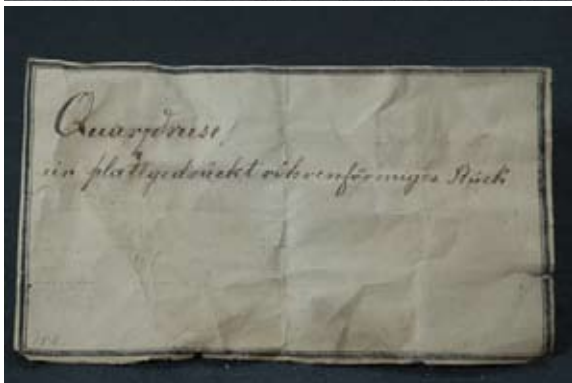 Quarzdruse,
ein plattgedrückt röhrenförmiges Stück